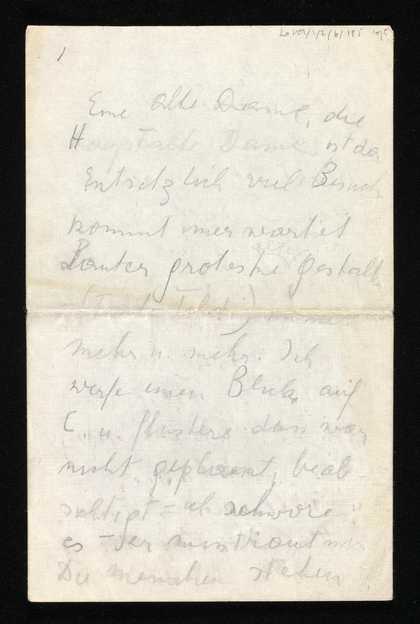 1
Eine alte Dame, die
Hauptalte Dame ist da
Entsetzlich viel Besuch
kommt unerwartet
Lauter groteske Gestalten
mehr u. mehr. Ich
werfe einen Blick auf
C. u. flüstere das war
nicht geplant, beab-
sichtigt = ich schwöre
es -
Die Menschen stehen